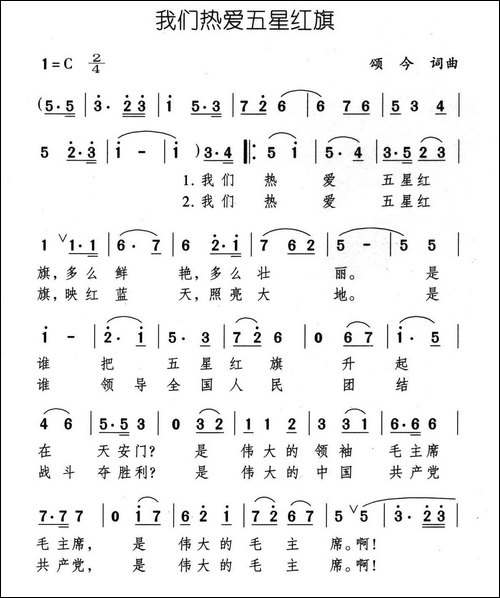 我们热爱五星红旗
1=C 2/4 颂今 词曲
(5·5 | 3·23 | i 53 | 72 6 | 6 76 | 5·4 | 3 4 |
5 2·3 | i - | i )3·4 |: 5 i | 5·4 | 3·5 23 |
1.我们 热 爱 五星红
2.我们 热 爱 五星红
1 ∨1·1 | 6·7 | 6 2·i | 7 62 | 5 - | 5 5 |
旗,多么 鲜 艳,多么 壮 丽。 是
旗,映红 蓝 天,照亮 大 地。 是
i - | 2·i | 5·3 | 72 6 | 0 67 | i·5 |
谁 把 五 星 红 旗 升 起
谁 领 导 全 国 人 民 团 结
4 6 | 5·5 3 | 0 32 | 1 1 2 | 3 31 | 6·6 6 |
在 天安门? 是 伟大的 领袖 毛主席
战斗 夺胜利? 是 伟大的 中国 共产党
7·7 7 | 0 i7 | 6 2 i | 72 67 | 5 5∨ | 3·23 |
毛主席, 是 伟大的 毛 主 席。啊!
共产党, 是 伟大的 毛 主 席。啊!